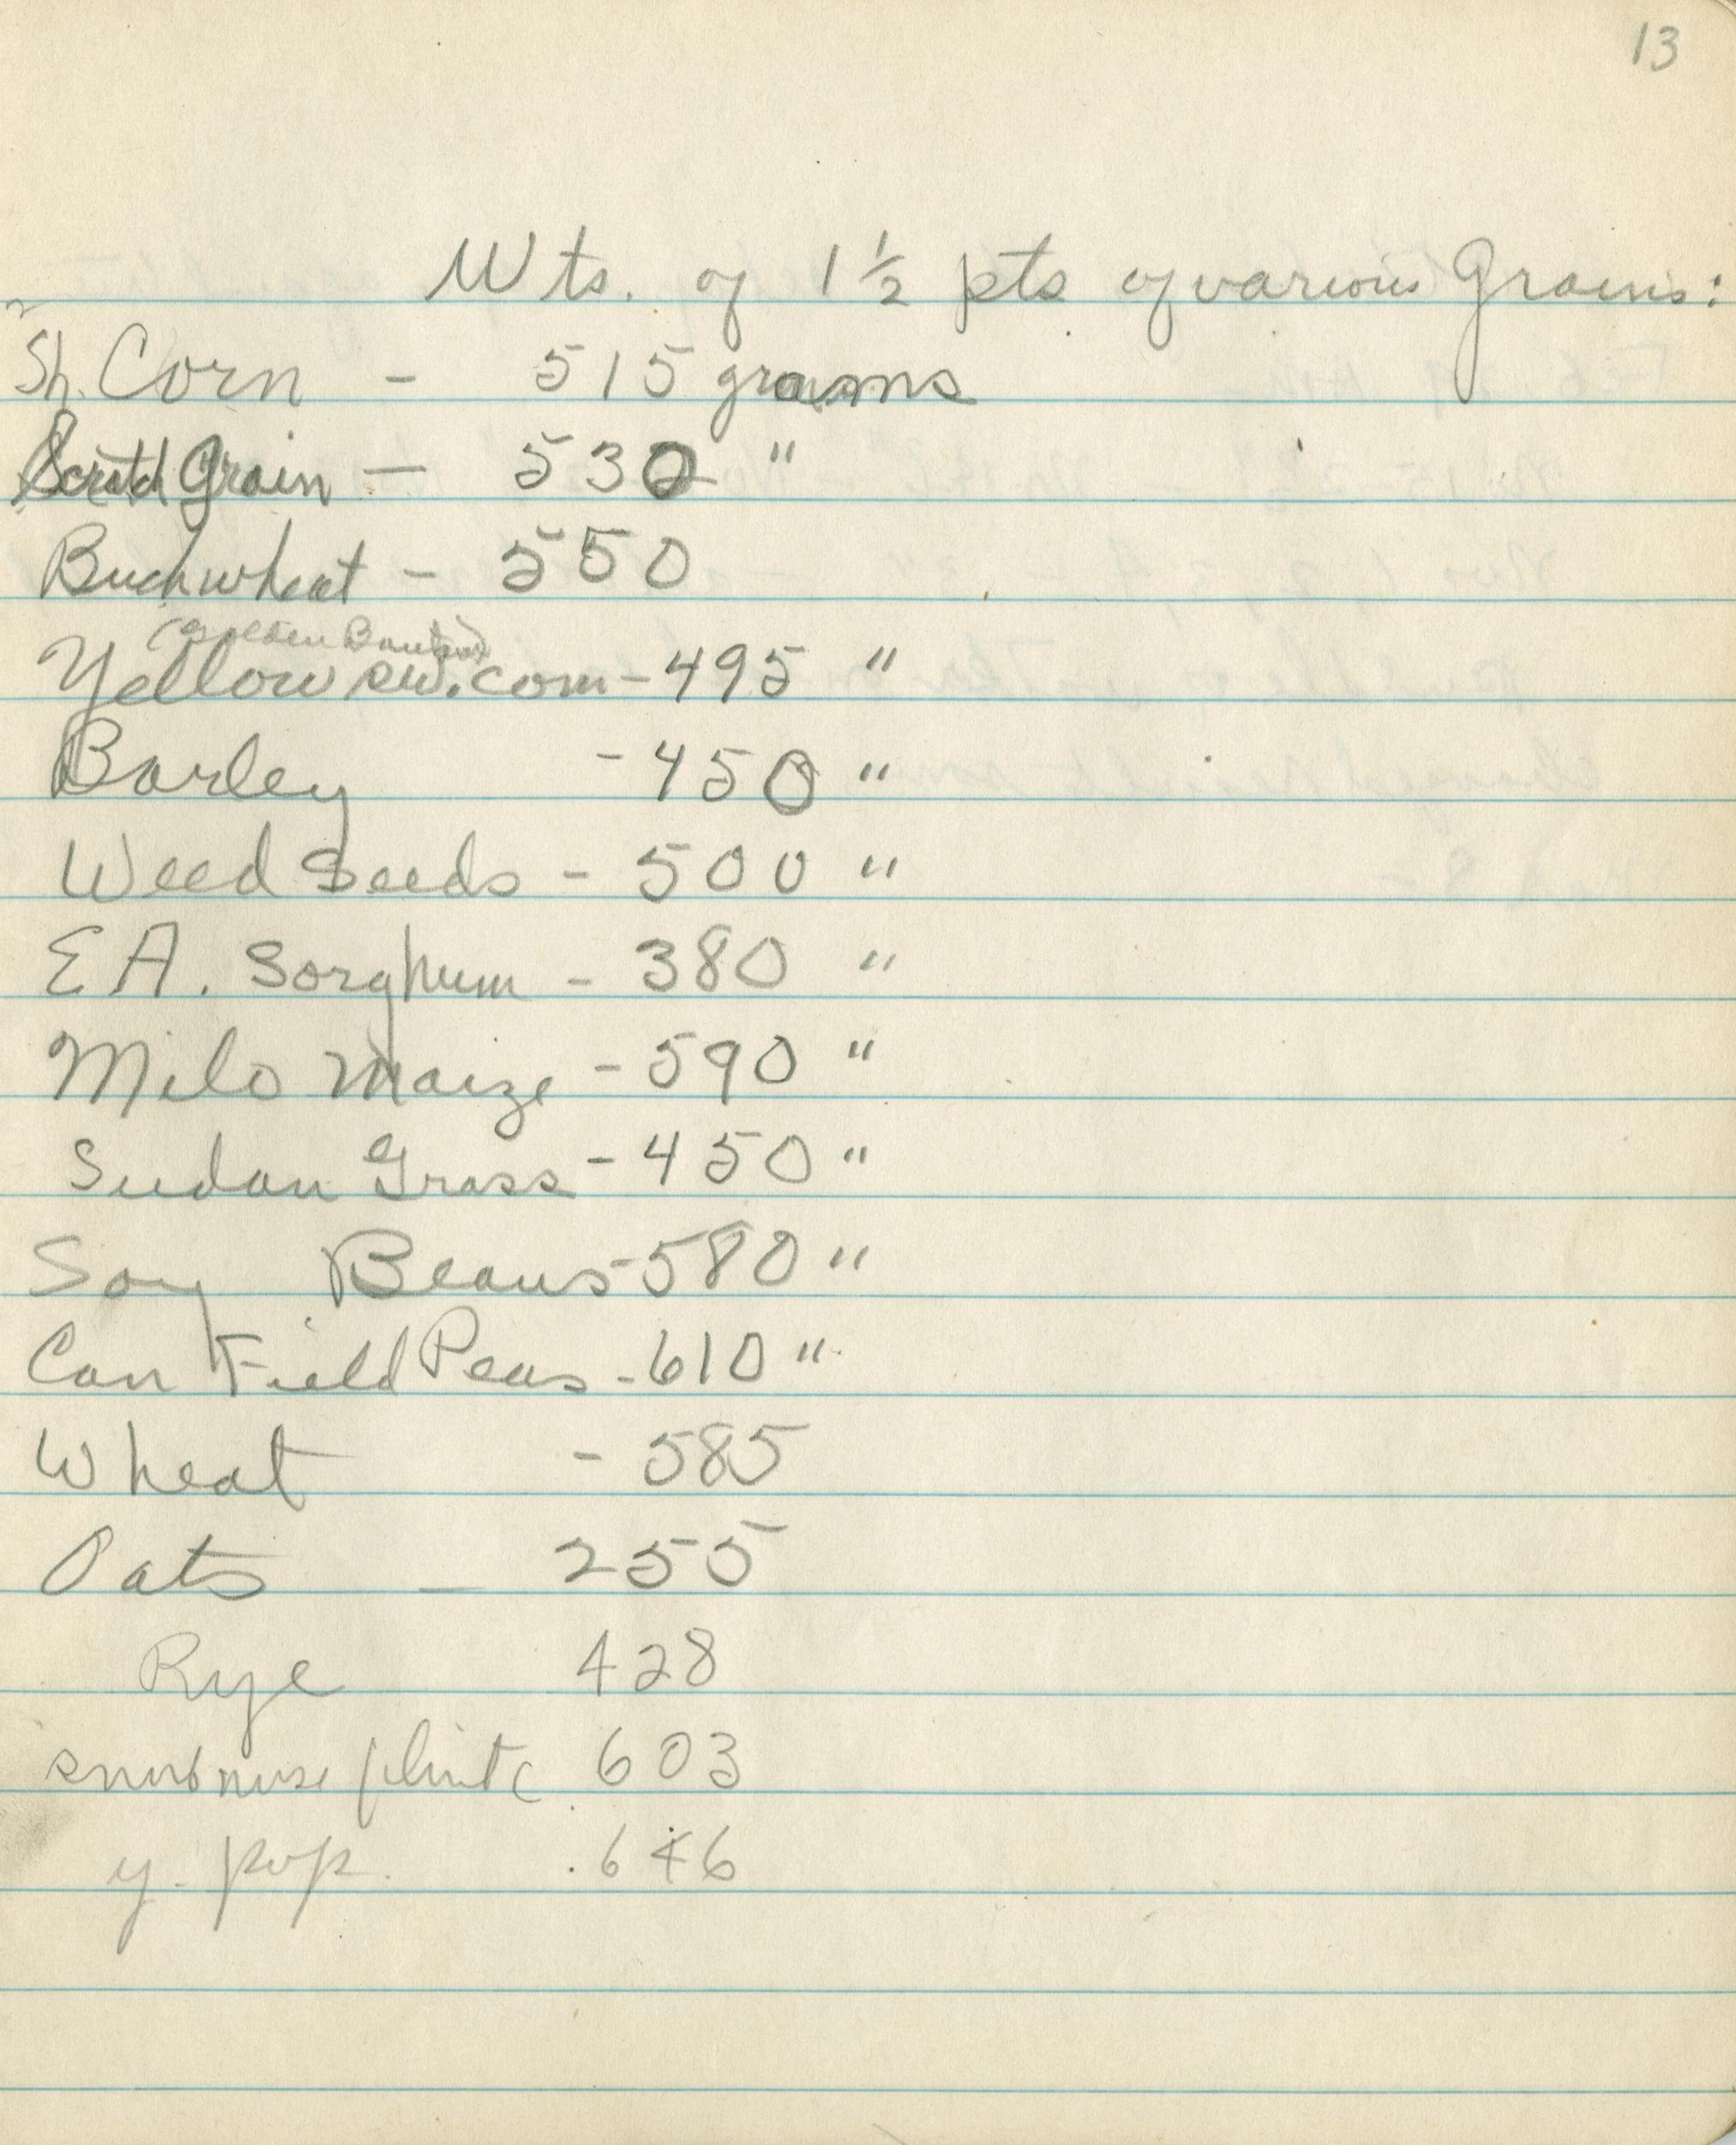 13
Wts. of 1 ½ pts of various Grains:
Sh. Corn - 515 grams
Scratch Grain - 530 "
Buckwheat - 550
(Golden Bantam)
Yellow sw. corn - 495 "
Barley - 450 "
Weed Seeds - 500 "
E A. Sorghum - 380 "
Milo Maize - 590 "
Sudan Grass - 450 "
Soy Beans - 580 "
Can Field Peas - 610 "
Wheat - 585
Oats - 255
Rye 428
603
y. pop. 646